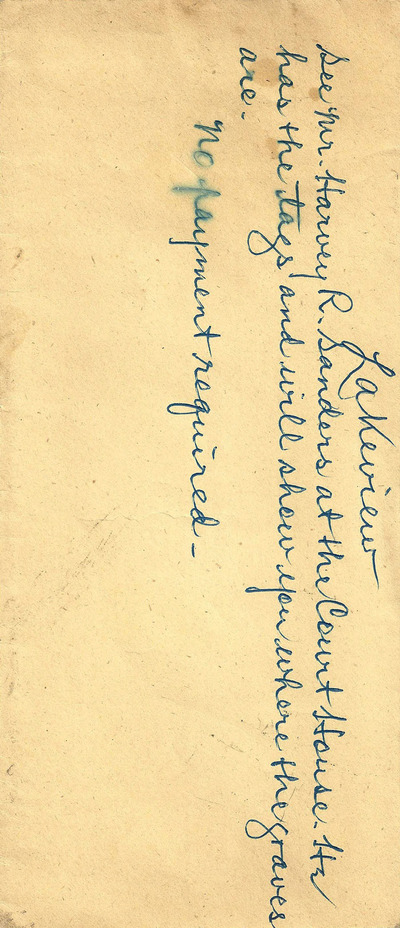 Lakeview
See Mr. Harvey R. Sanders at the Court House. He
has the tags and will show you where the graves
are.
No payment required -